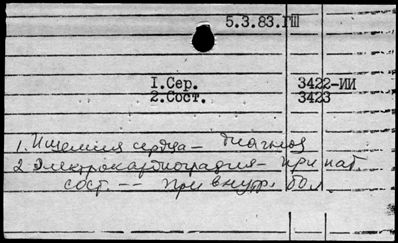 5.3.83.ГШ
1.Сер. 3422-ИИ
2.Сост. 3423
1. Ишемия сердца - диагноз
2 Электрокардиография - при пат.
сост. -- при внутр. бол.